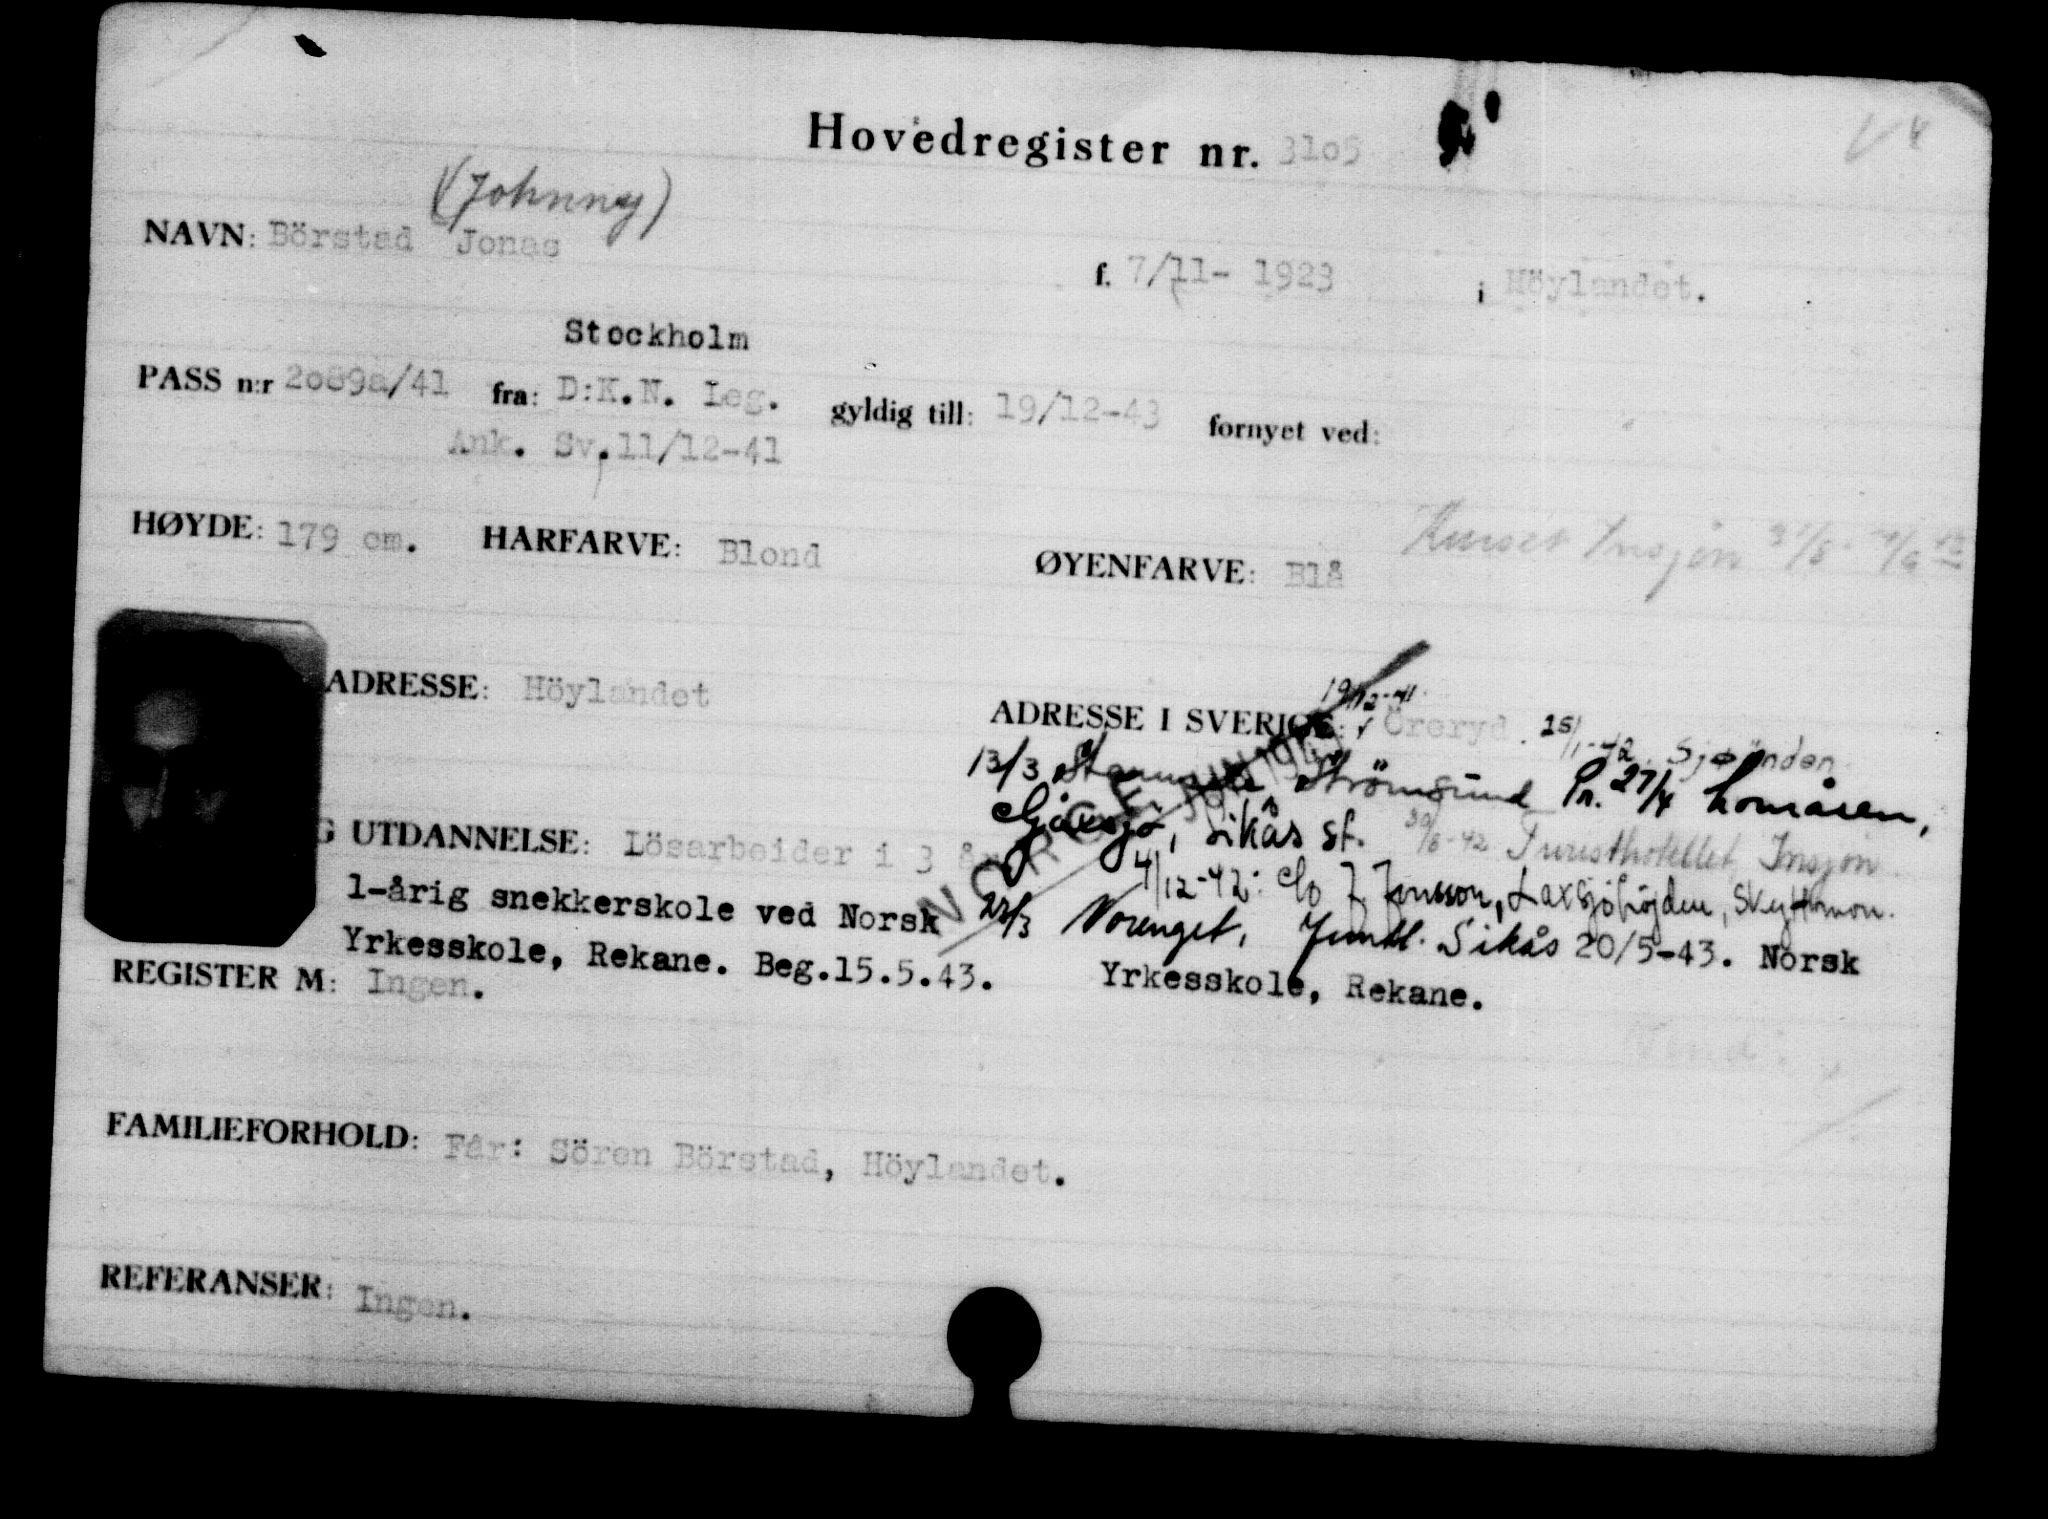 Hovedregister nr. 3105
(Johnny)
NAVN: Börstad Jonas
f. 7/11- 1923 i Höylandet.
Stockholm
PASS n:r 2089a/41 fra: D:K.N. Leg. gyldig till: 19/12-43 fornyet ved:
Ank. Sv. 11/12-41
HØYDE: 179 cm. HARFARVE: Blond ØYENFARVE: Blå
Kurset Insjön 31/5
ADRESSE: Höylandet
ADRESSE I SVERIGE: 19/12-41 Öreryd. 15/1-42. Sjøänden
13/3 Strömsund Pr. 27/4 Lomåsen,
Sikås st. 30/6-42 Turisthotellet, Insjön.
G UTDANNELSE: Lösarbeider i 3 år
4/12-42: c/o J. Jonsson, Laxsjöhöjden, Skyttmon.
1-årig snekkerskole ved Norsk
Yrkesskole, Rekane. Beg.15.5.43.
23/3 Norenget, Jemtl. Sikås 20/5-43. Norsk
Yrkesskole, Rekane.
NORGE JUN 194
REGISTER M: Ingen.
FAMILIEFORHOLD: Får: Sören Börstad, Höylandet.
REFERANSER: Ingen.